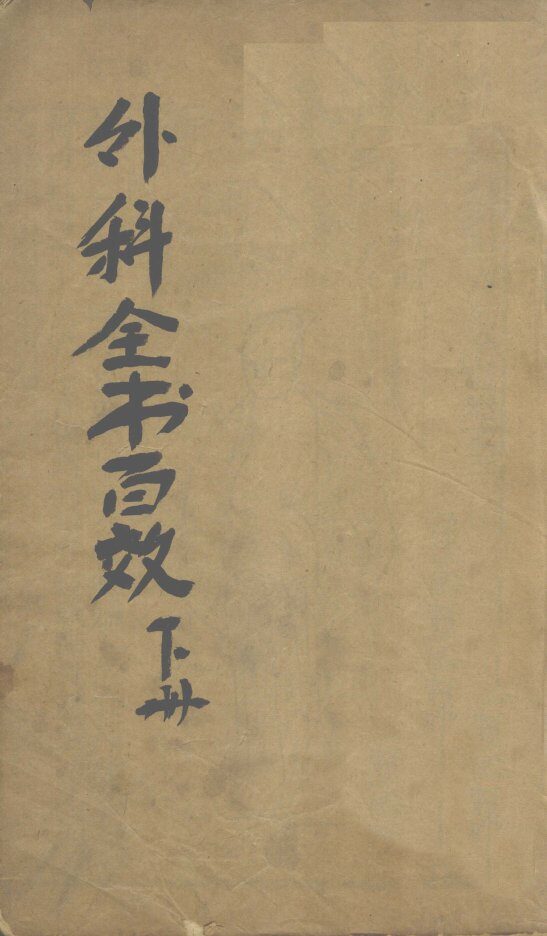 外科全书百效
下册